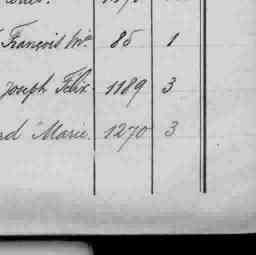 François Vve 85 1
Joseph Félix 1189 3
rd Marie 1270 3